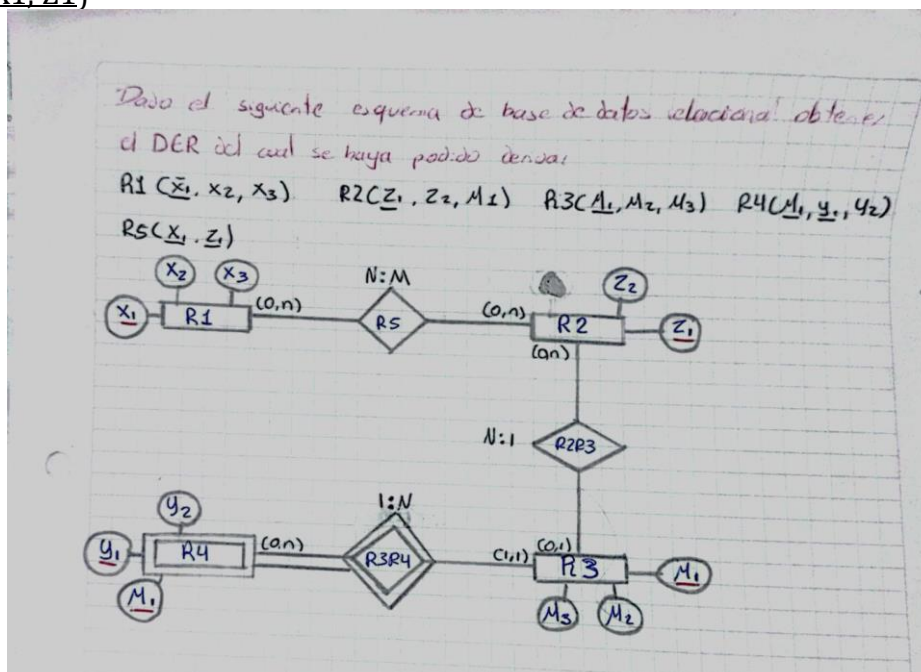 X1, Z1)
Dado el siguiente esquema de base de datos relacional obtener
el DER del cual se haya podido derivar
R1 (X1, X2, X3) R2(Z1, Z2, M1) R3(M1, M2, M3) R4(M1, Y1, Y2)
R5(X1, Z1)
X2 X3 N:M Z2
X1 R1 (0,n) R5 (0,n) R2 Z1
(0,n)
N:1 R2R3
Y2 1:N
Y1 R4 (0,n) R3R4 (1,1) (0,1) R3 M1
M1 M3 M2